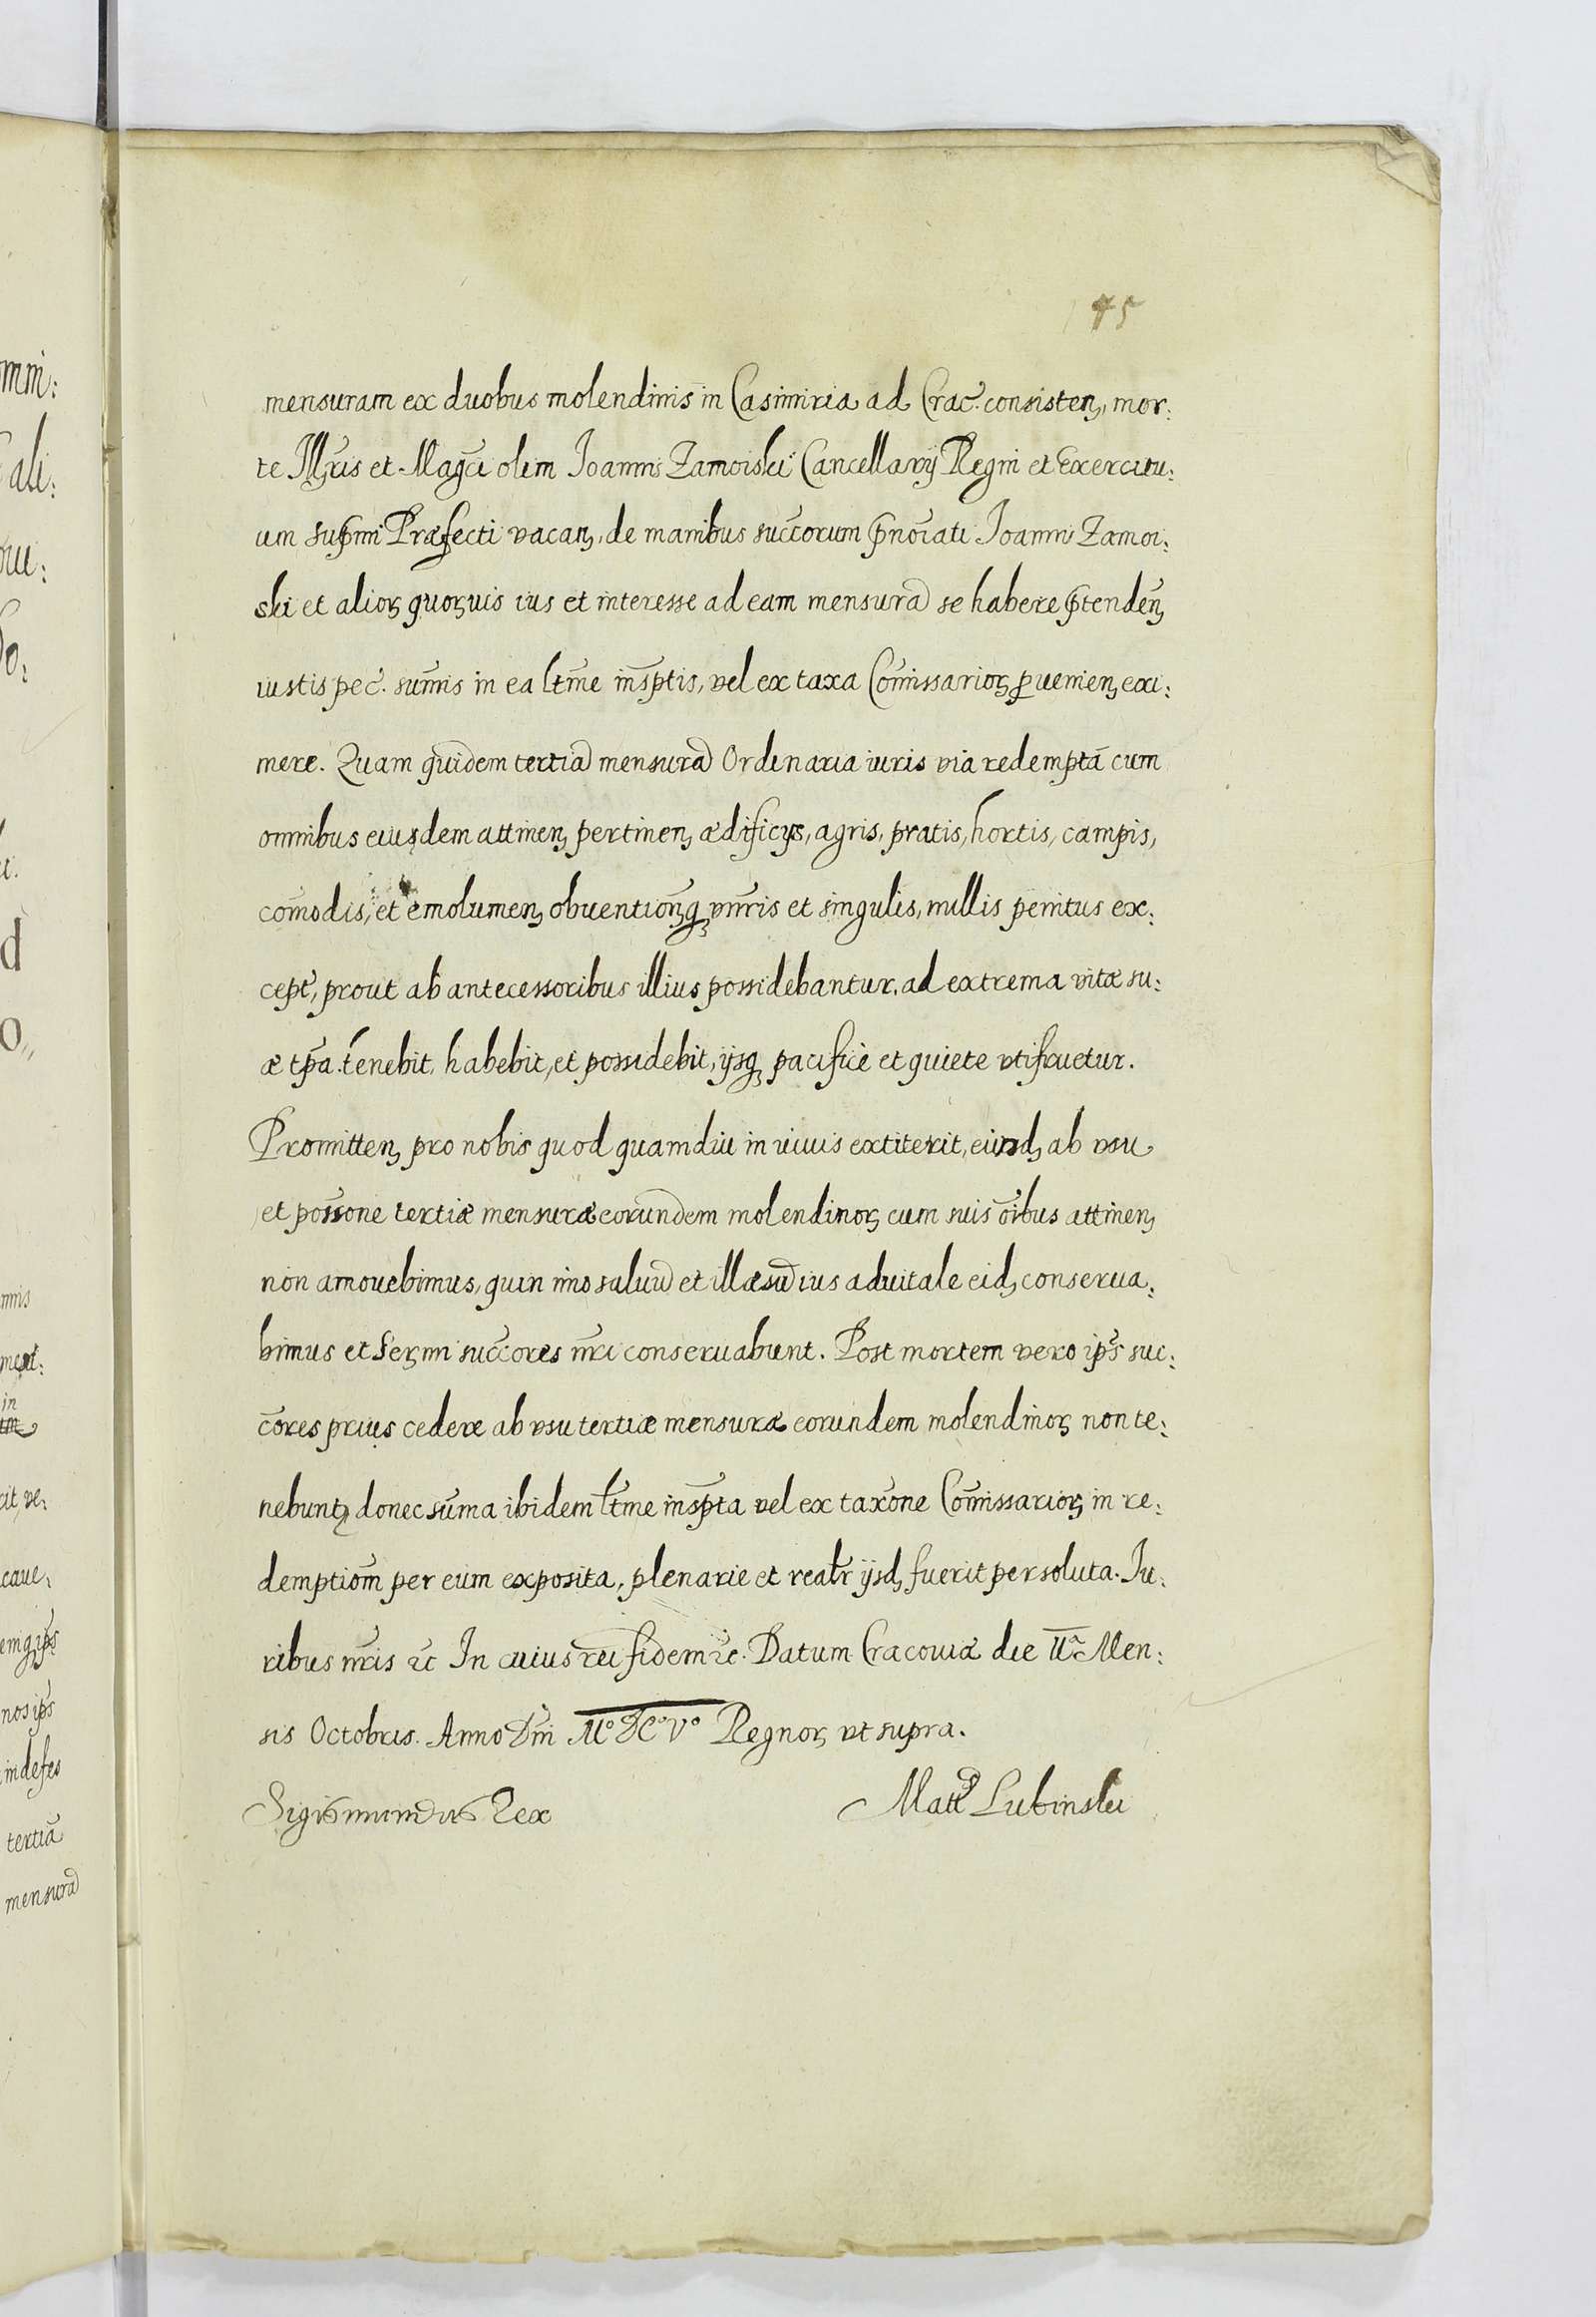 45
mensuram ex duobus molendinis in Casimiria ad Crac. consisten, mor:
te Illris et Magci olim Joannis Zamoiski Cancellarij Regni et Exercitu:
um supmi Præfecti vacan, de manibus succorum pnoiati Joannis Zamoi:
ski et alior quorvis ius et interesse ad eam mensurā se habere ptenden
iustis pec. sumis in ea ltme insptis, vel ex taxa Comissarior pvenien, exi:
mere. Quam quidem tertiā mensurā Ordinaria iuris via redemptā cum
omnibus eiusdem attinen, pertinen, ædificijs, agris, pratis, hortis, campis,
comodis, et emolumen, obventionq vnivris et singulis, nullis penitus ex:
cept, prout ab antecessoribus illius possidebantur, ad extrema vitæ su:
æ tpa. tenebit, habebit, et possidebit, ijsq pacificè et quiete vtifruetur.
Promitten, pro nobis quod quamdiu in vivis extiterit, eund, ab vsu
et possone tertiæ mensuræ eorundem molendinor, cum suis oibus attinen,
non amovebimus, quin imo salvū et illæsū ius advitale eid, conserva:
bimus et Sermi succores nri conservabunt. Post mortem vero ips suc:
cores prius cedere ab vsu tertiæ mensuræ eorundem molendinor, non te:
nebunt, donec suma ibidem ltme inspta vel ex taxone Comissarior, in re:
demptiom per eum exposita, plenarie et realr ijsd, fuerit persoluta. Iu:
ribus nris etc In cuius rei fidem etc. Datum Cracoviæ die IIa Men:
sis Octobris. Anno Dni Mº DCº Vº Regnor, vt supra.
Sigismundus Rex
Matt Lubinski